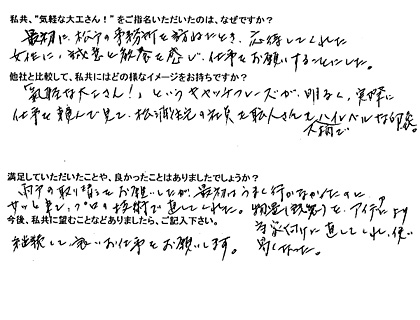 私共、"気軽な大工さん！"をご指名いただいたのは、なぜですか？
最初に、松戸の事務所を訪ねたとき、応待してくれた
女性に、誠意と 感じ、仕事をお願いすることにした。
他社と比較して、私共にはどの様なイメージをお持ちですか？
「気軽な大工さん！」というキャッチフレーズが、明るく、実際に
仕事を頼んで見て、松 住宅の社員も職人さんもハイレベルな印象。
満足していただいたことや、良かったことはありましたでしょうか？
雨戸の取り替えをお願いしたが、最初はうまく行かなかったのに
サッと来て、プロの技術で直してくれた。物置 を、アイデアにより
直してくれ、使い
今後、私共に望むことなどありましたら、ご記入下さい。
易くなった。
継続して、良いお仕事をお願いします。